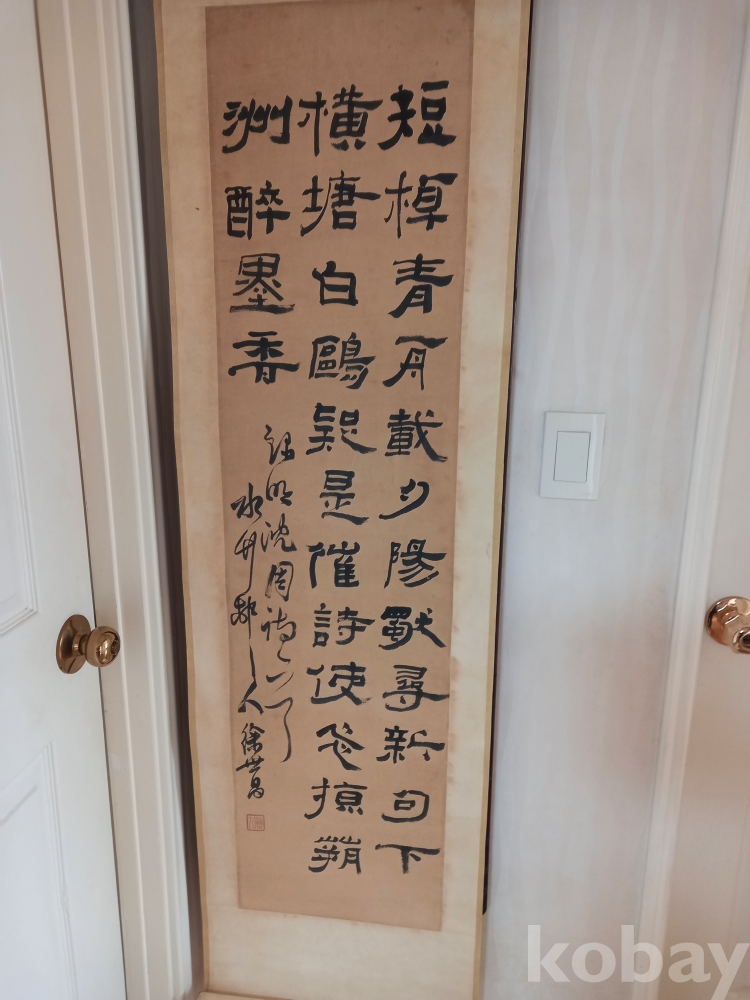 短棹青舟載夕陽尋新句下
橫塘白鷗疑是催詩使掠
洲醉墨香
錄明沈周詩
水竹邨人徐世昌
kobay